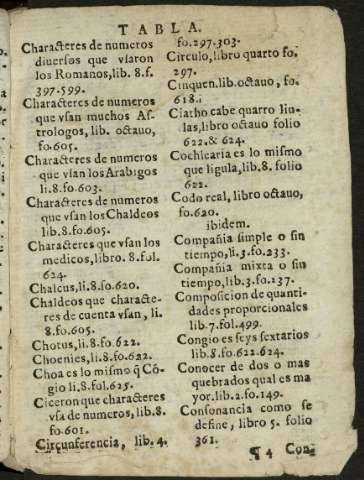 TABLA.
Characteres de numeros
diuersos que vsaron
los Romanos, lib. 8. f.
397.599.
Characteres de numeros
que vsan muchos As-
trologos, lib. octauo,
fo.605.
Characteres de numeros
que vsan los Arabigos
li.8.fo.603.
Characteres de numeros
que vsan los Chaldeos
lib.8.fo.605.
Characteres que vsan los
medicos, libro. 8.fol.
624.
Chalcus, li.8.fo.620.
Chaldeos que characte-
res de cuenta vsan, li.
8.fo.605.
Chotus, li.8.fo.622.
Choenies, li.8.fo.622.
Choa es lo mismo q̃ Cõ-
gio li.8.fol.625.
Ciceron que characteres
vsa de numeros, lib.8.
fo.601.
Circunferencia, lib. 4.
fo.297.303.
Circulo, libro quarto fo.
297.
Cinquen. lib. octauo, fo.
618.
Ciatho cabe quatro liu-
las, libro octauo folio
622.& 624.
Cochlearia es lo mismo
que ligula, lib.8. folio
622.
Codo real, libro octauo,
fo.620.
ibidem.
Compañia simple o sin
tiempo, li.3.fo.233.
Compañia mixta o sin
tiempo, lib.3.fo.137.
Composicion de quanti-
dades proporcionales
lib.7.fol.499.
Congio es seys sextarios
lib.8.fo.622.624.
Conocer de dos o mas
quebrados qual es ma
yor.lib.2.fo.149.
Consonancia como se
define, libro 5. folio
361.
¶ 4 Con-